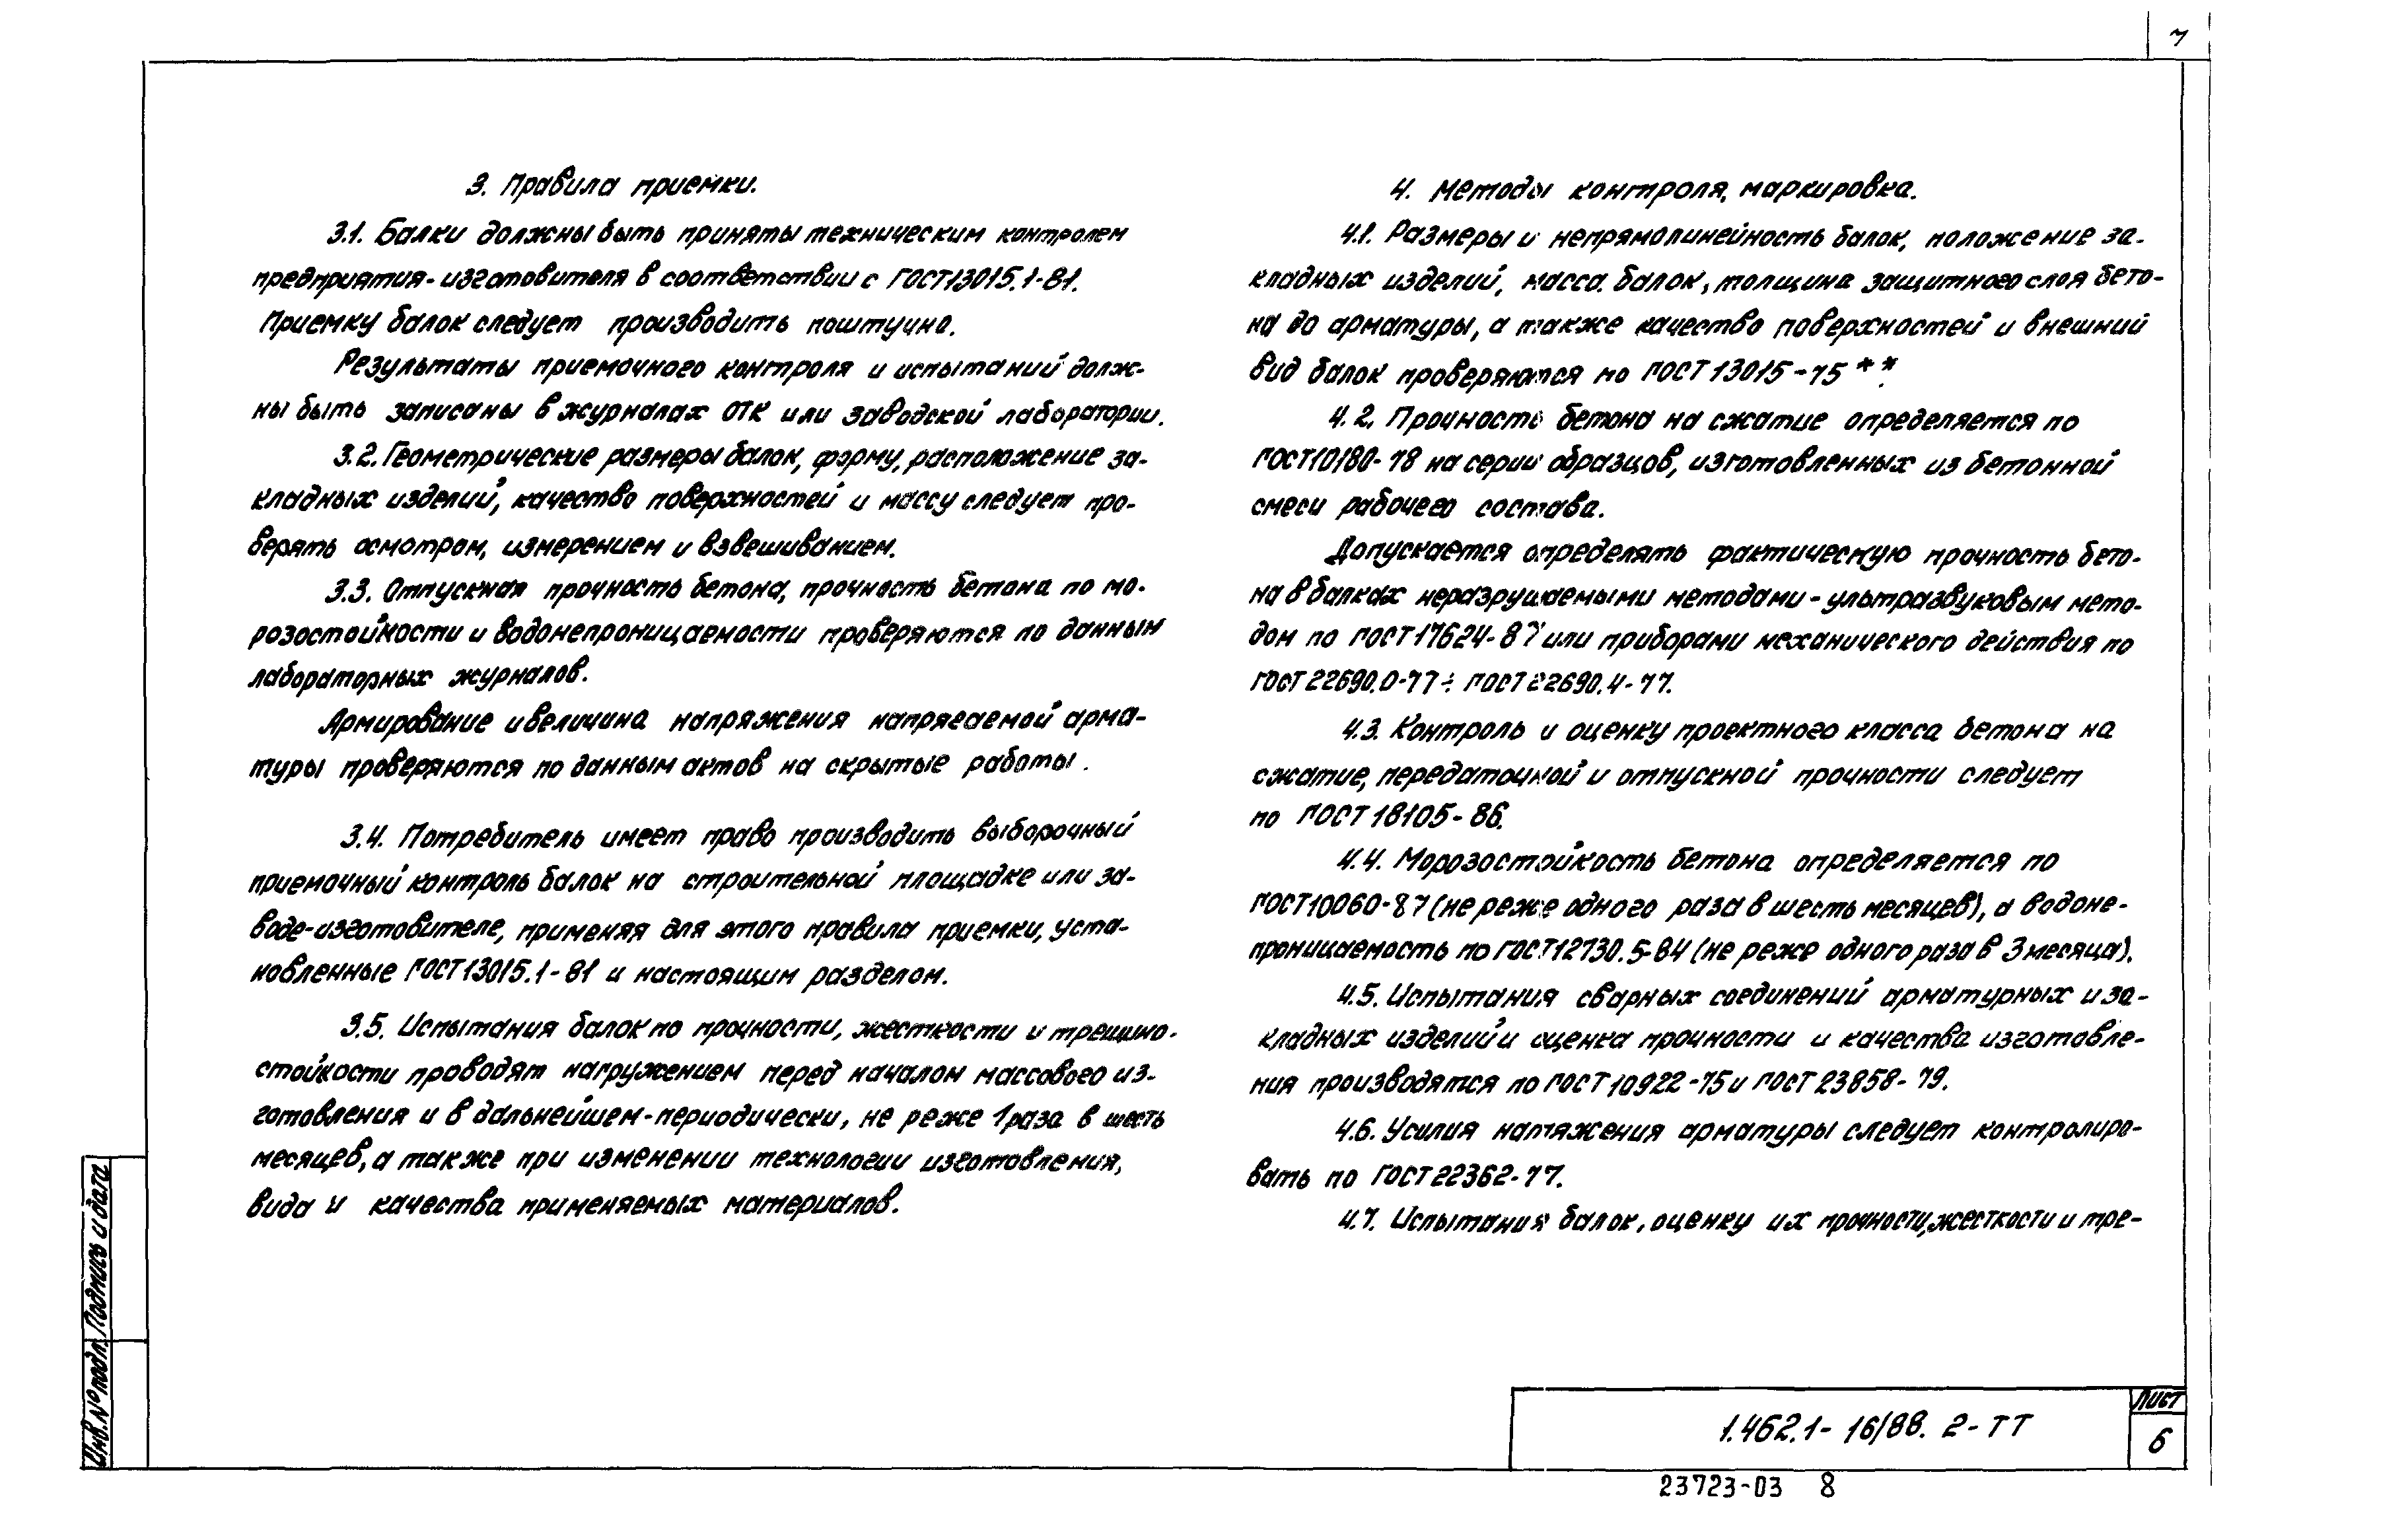 7
3. Правила приемки.
3.1. Балки должны быть приняты техническим контролем
предприятия-изготовителя в соответствии с ГОСТ 13015.1-81.
Приемку балок следует производить поштучно.
Результаты приемочного контроля и испытаний долж-
ны быть записаны в журналах ОТК или заводской лаборатории.
3.2. Геометрические размеры балок, форму, расположение за-
кладных изделий, качество поверхностей и массу следует про-
верять осмотром, измерением и взвешиванием.
3.3. Отпускная прочность бетона, прочность бетона по мо-
розостойкости и водонепроницаемости проверяются по данным
лабораторных журналов.
Армирование и величина напряжения напрягаемой арма-
туры проверяются по данным актов на скрытые работы.
3.4. Потребитель имеет право производить выборочный
приемочный контроль балок на строительной площадке или за-
воде-изготовителе, применяя для этого правила приемки, уста-
новленные ГОСТ 13015.1-81 и настоящим разделом.
3.5. Испытания балок по прочности, жесткости и трещино-
стойкости проводят нагружением перед началом массового из-
готовления и в дальнейшем-периодически, не реже 1 раза в шесть
месяцев, а также при изменении технологии изготовления,
вида и качества применяемых материалов.
4. Методы контроля, маркировка.
4.1. Размеры и непрямолинейность балок, положение за-
кладных изделий, масса балок, толщина защитного слоя бето-
на до арматуры, а также качество поверхностей и внешний
вид балок проверяются по ГОСТ 13015-75**.
4.2. Прочность бетона на сжатие определяется по
ГОСТ 10180-78 на серии образцов, изготовленных из бетонной
смеси рабочего состава.
Допускается определять фактическую прочность бето-
на в балках неразрушаемыми методами - ультразвуковым мето-
дом по ГОСТ 17624-87 или приборами механического действия по
ГОСТ 22690.0-77 ÷ ГОСТ 22690.4-77.
4.3. Контроль и оценку проектного класса бетона на
сжатие, передаточной и отпускной прочности следует
по ГОСТ 18105-86.
4.4. Морозостойкость бетона определяется по
ГОСТ 10060-87 (не реже одного раза в шесть месяцев), а водоне-
проницаемость по ГОСТ 12730.5-84 (не реже одного раза в 3 месяца).
4.5. Испытания сварных соединений арматурных и за-
кладных изделий и оценка прочности и качества изготовле-
ния производятся по ГОСТ 10922-75 и ГОСТ 23858-79.
4.6. Усилия натяжения арматуры следует контролиро-
вать по ГОСТ 22362-77.
4.7. Испытания балок, оценку их прочности, жесткости и тре-
Подпись и дата
Инв. № подл.
1.462.1-16/88. 2-ТТ
Лист
6
23723-03 8